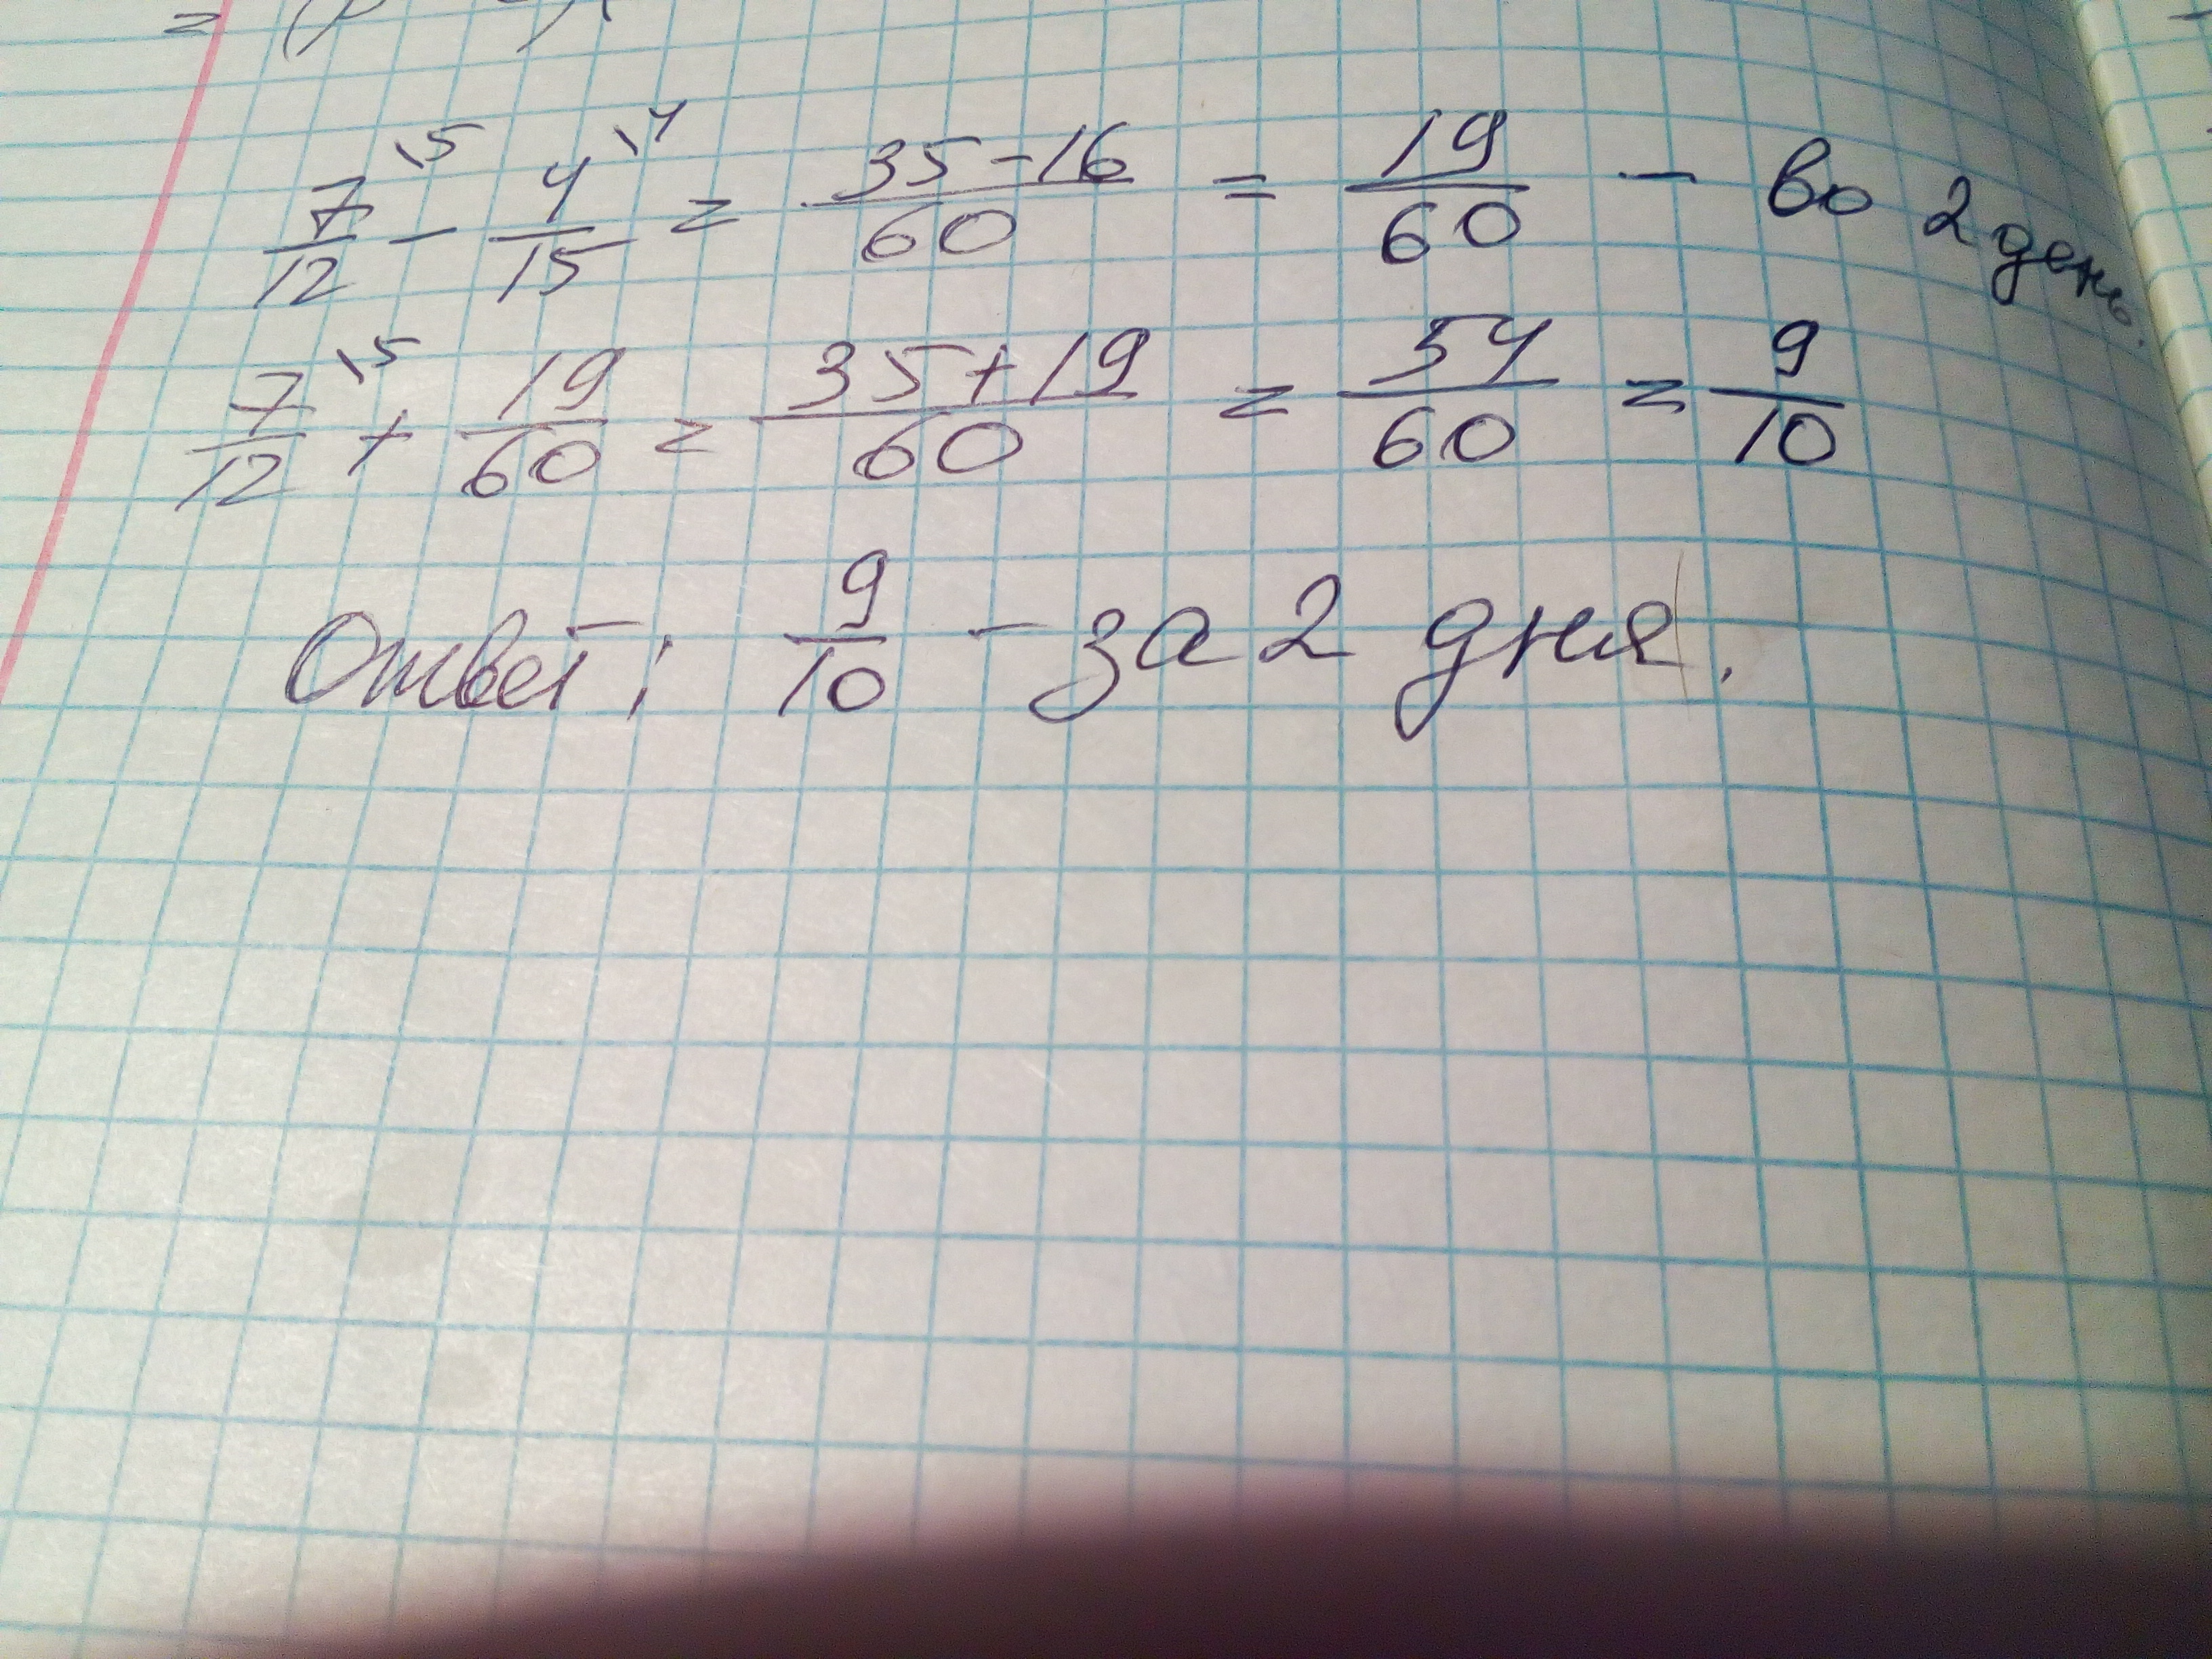 7/12 \5 - 4/15 \4 = 35-16/60 = 19/60 - во 2 день.
7/12 \5 + 19/60 = 35+19/60 = 54/60 = 9/10
Ответ: 9/10 - за 2 дня.